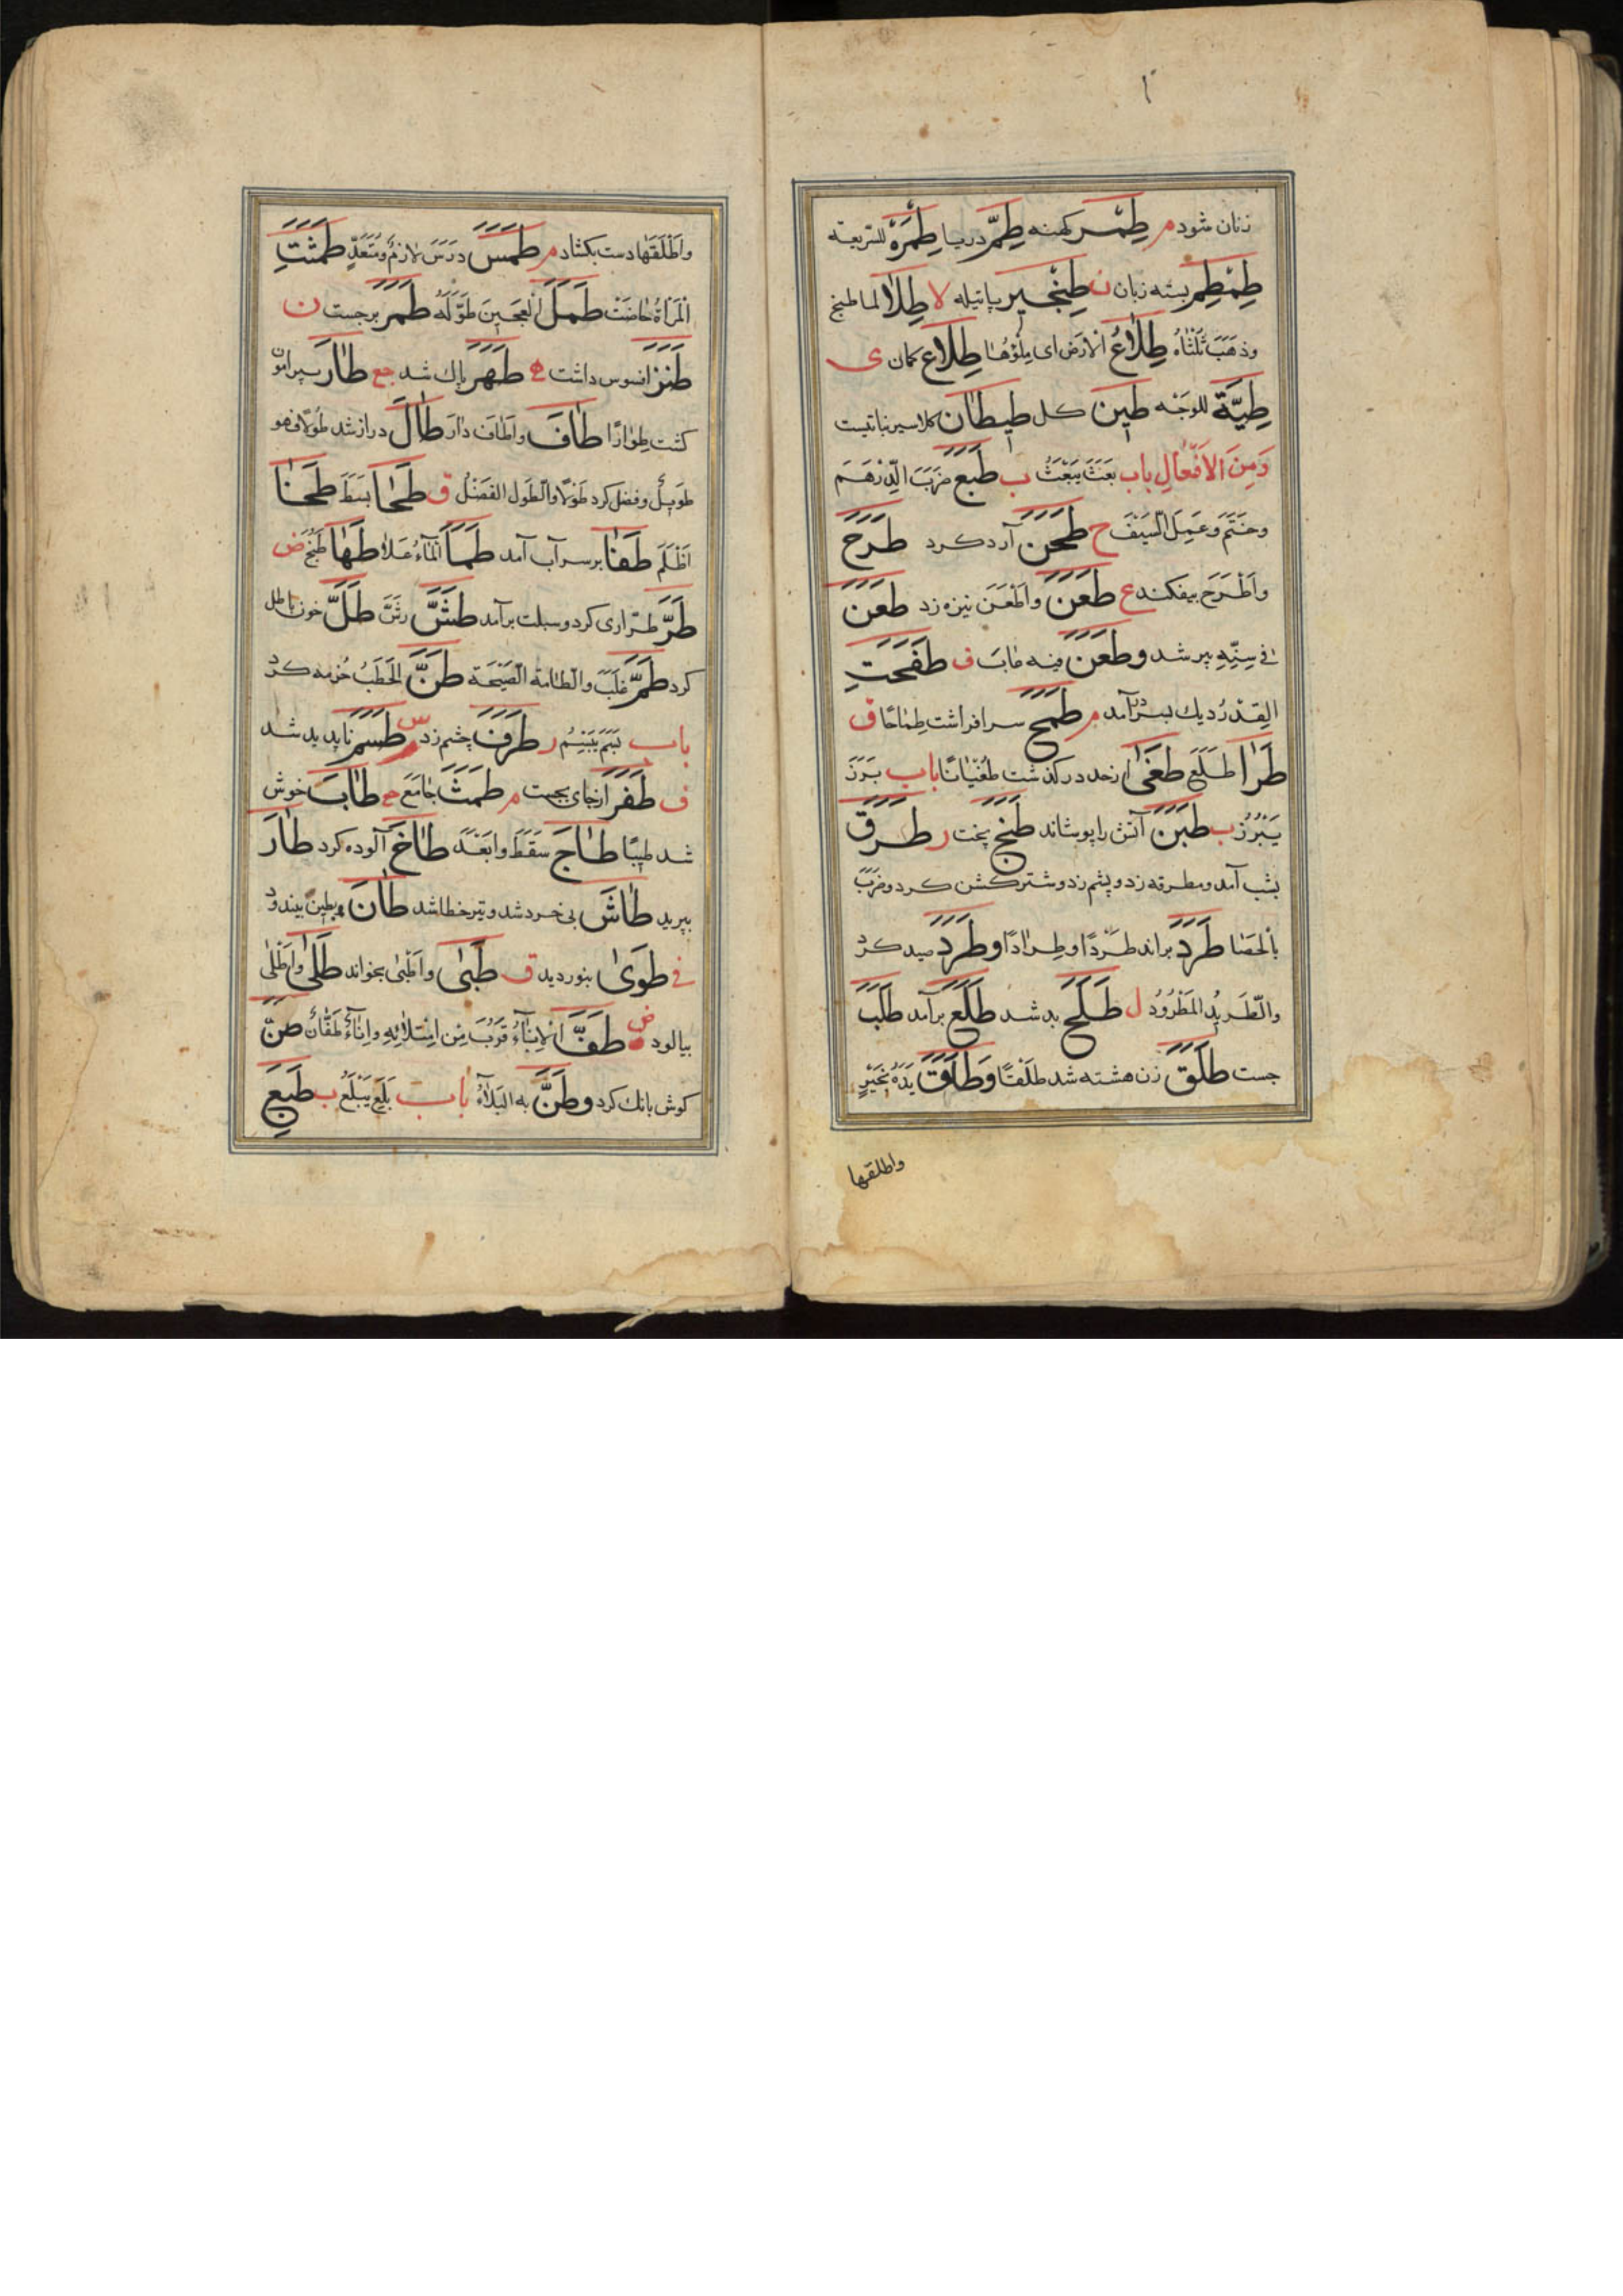 زنان شود م طِمْر کهنه طِمِرّ دریا طِمِرَّة للسریعة
طِمْطِم بسته زبان ن طِنْجیر پاتیله لا طِلَا لما طبخ
وذهَبَ ثلثاه طِلَاعُ الارض ای ملؤها طِلَاع کمان ی
طِیَّة للوجه طین کل طیطان کلاسیر نباتیست
وَمِنَ الاَفْعَالِ باب بَعَثَ یَبْعَثُ ب طَبَعَ ضَرَبَ الدِّرْهَمَ
وخَتَمَ وَعَمِلَ السَّیْفَ ح طَحَنَ آرد کرد طَرَحَ
واَطْرَحَ بیفکند ع طَعَنَ واَطْعَنَ نیزه زد طَعَنَ
فی سِنِّهِ پیر شد وطَعَنَ فیه عَابَ ف طَفَحَتِ
القِدْرُ دیك بسر درآمد م طَمَحَ سر افراشت طِمَاحًا ق
طَرَا طَلَعَ طَغَی از حد درکذشت طُغْیَانًا باب بَرَزَ
یَبْرُزُ ب طَبَنَ آتش را پوشاند طَبَخَ پخت ر طَرَقَ
بشب آمد ومطرقه زد وپشم زد وشتر کشن کرد وضَرَبَ
بالحَصَا طَرَدَ براند طَرْدًا وطِرَادًا وطَرَدَ صید کرد
والطَّرِیدُ المَطْرُودُ ل طَلَحَ بد شد طَلَعَ برآمد طَلَبَ
جست طَلَقَ زن هشته شد طَلَقْتًا وَطَلَقَ یَدَهُ بِخَیْرٍ
واطلقها
واَطْلَقَهَا دست بکشاد م طَمَسَ دَرَسَ لازمٌ ومُتَعَدٍّ طَمَثَتِ
المَرْأَةُ حَاضَتْ طَمَلَ العَجِینَ طَوَّلَهُ طَمَرَ برجست ن
طَنَزَ افسوس داشت ه طَهَرَ پاك شد جع طَارَ پیرامون
کشت طِوَارًا طَافَ واَطَافَ دَارَ طَالَ دراز شد طُولًا فهو
طَوِیلٌ وفضل کرد طَوْلًا والطَّول الفَضْلُ ق طَحَا بَسَطَ طَحَنَا
اَظْلَمَ طَفَا بر سر آب آمد طَمَا المَآءُ عَلَا طَهَا طَبَخَ ض
طَرَّ طرّاری کرد وسبلت برآمد طَشَّ رَشَّ طَلَّ خون باطل
کرد طَمَّ غَلَبَ والطّامة الصَّیْحَة طَنَّ الحَطَبُ حُزمه کرد
باب بَسَمَ یَبْسِمُ ر طَرَفَ چشم زد س طَسَمَ ناپدید شد
ف طَفَرَ از جای بجست م طَمَثَ جَامَعَ ج طَابَ خوش
شد طِیبًا طَاجَ سَقَطَ وابَعْدَ طَاخَ آلوده کرد طَارَ
بپرید طَاشَ بی خرد شد وتیر خطا شد طَانَ بطین بیندود
فی طَوَیٰ بنوردید ق طَبَیٰ واَطْبَیٰ بخواند طَلَیٰ واَطْلَیٰ
بیالود ض طَفَّ الاِنَآءُ قَرُبَ مِن امْتِلَائِهِ واِنَآءٌ طَفَّانُ طَنَّ
کوش بانك کرد وطَنَّ به البَلَآءُ باب بَلِعَ یَبْلَعُ ب طَبِعَ